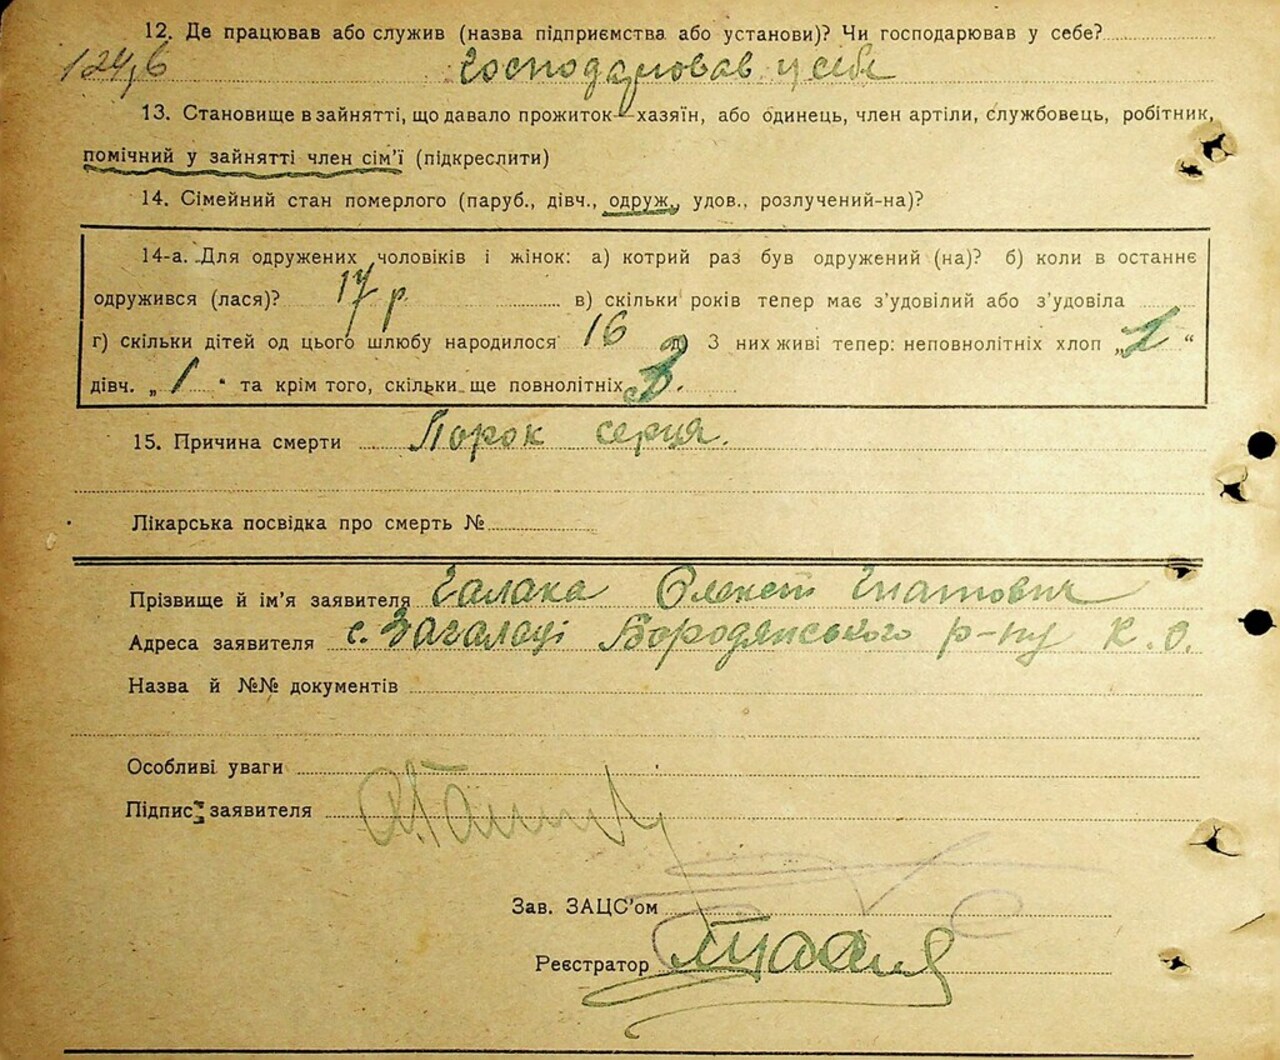 12. Де працював або служив (назва підприємства або установи)? Чи господарював у себе?
124,6 Господарював у себе
13. Становище в зайнятті, що давало прожиток—хазяїн, або одинець, член артіли, службовець, робітник,
помічний у зайнятті член сім'ї (підкреслити)
14. Сімейний стан померлого (паруб., дівч., одруж., удов., розлучений-на)?
14-а. Для одружених чоловіків і жінок: а) котрий раз був одружений (на)? б) коли в останнє
одружився (лася)? 17 р. в) скільки років тепер має з'удовілий або з'удовіла
г) скільки дітей од цього шлюбу народилося 16 д) З них живі тепер: неповнолітніх хлоп „ “
дівч. „ 1 “ та крім того, скільки ще повнолітніх 3.
15. Причина смерти Порок серця.
Лікарська посвідка про смерть №
Прізвище й ім'я заявителя Галака Олексій Гнатович
Адреса заявителя с. Загальці Бородянського р-ну К.О.
Назва й №№ документів
Особливі уваги
Підпис заявителя
Зав. ЗАЦС'ом
Реєстратор